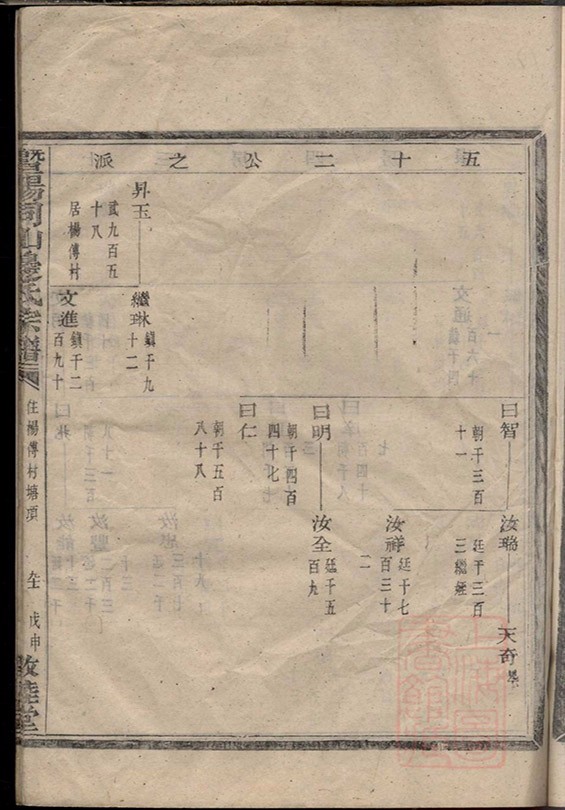 五十二公之派
曰智
朝千三百
十一
汝瑞
廷千三百
三繼經
天奇
汝祥
廷千七
百三十
二
曰明
朝千四百
四十七
汝全
廷千五
百九
曰仁
朝千五百
八十八
昇玉
貳九百五
十八
居楊傅村
繼琳
鎮千九
十二
文進
鎮千二
百九十
暨陽同山邊氏宗譜
住楊傅村塘項
戊申
敦睦堂